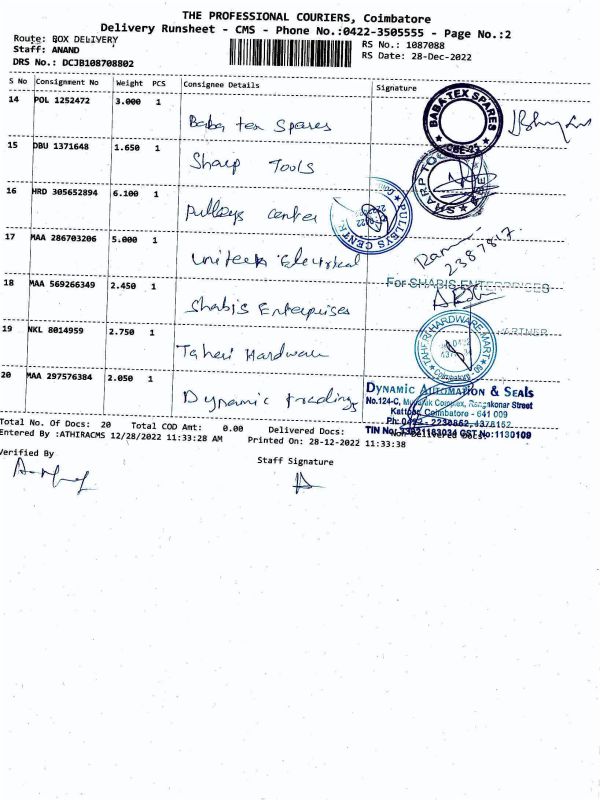 THE PROFESSIONAL COURIERS, Coimbatore
Delivery Runsheet - CMS - Phone No.:0422-3505555 - Page No.:2
Route: BOX DELIVERY
RS No.: 1087088
Staff: ANAND
RS Date: 28-Dec-2022
DRS No.: DCJB108708802
S No Consignment No Weight PCS Consignee Details Signature
14 POL 1252472 3.000 1
Baba tex Spares
BABA-TEX SPARES
CBE-22
15 DBU 1371648 1.650 1
Sharp Tools
SHARP
16 HRD 305652894 6.100 1
Pulleys center
PULLEYS
17 MAA 286703206 5.000 1
Electrical
2387817
18 MAA 569266349 2.450 1
Shabis Enterprises
For SHABIS ENTERPRISES
PARTNER
19 NKL 8014959 2.750 1
Taheri Hardware
TAHERI HARDWARE MART
Coimbatore
20 MAA 297576384 2.050 1
Dynamic trading
DYNAMIC AUTOMATION & SEALS
No.124-C, Complex, Rangakonar Street
Kattoor, Coimbatore - 641 009
Ph: 0422 - 2230862, 4378152
TIN No: GST No:1130109
Total No. Of Docs: 20 Total COD Amt: 0.00 Delivered Docs: Non Delivered Docs:
Entered By :ATHIRACMS 12/28/2022 11:33:28 AM Printed On: 28-12-2022 11:33:38
Verified By
Staff Signature